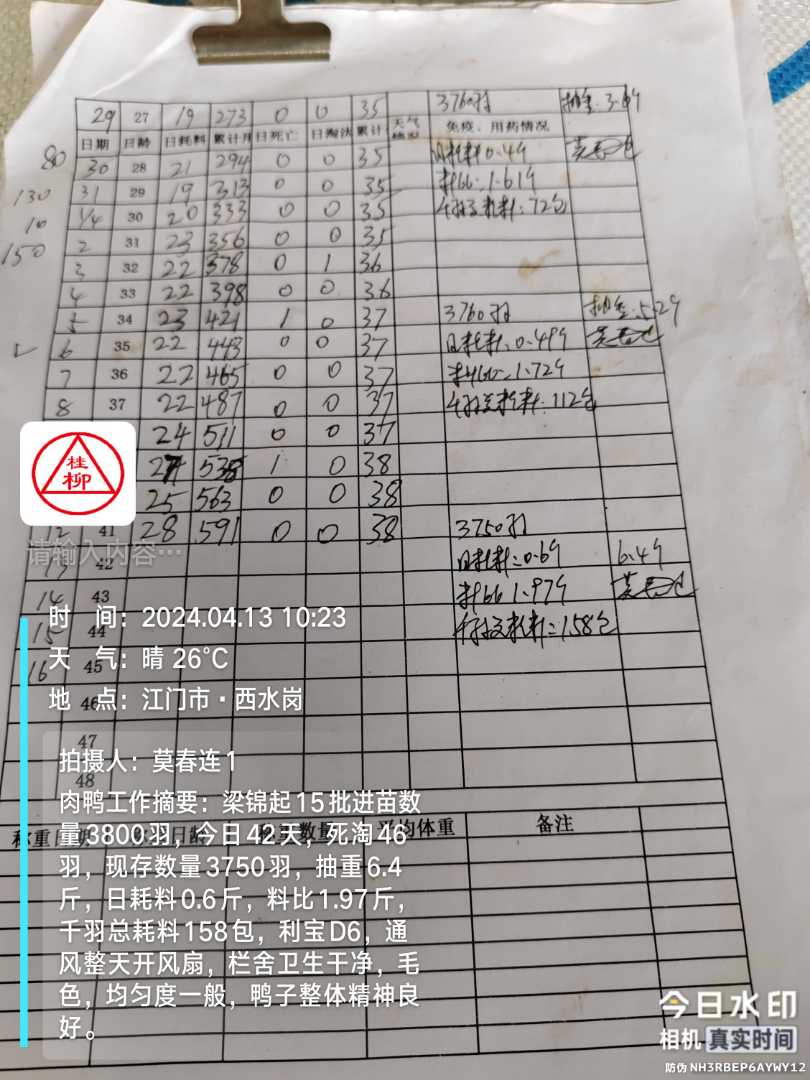 29 27 19 273 0 0 35 3760羽 抽重:3.6斤
日期 日龄 日耗料 累计 日死亡 日淘汰 累计 天气 免疫、用药情况
80
30 28 21 294 0 0 35 日耗料0.4斤
130
31 29 19 313 0 0 35 料比:1.61斤
10
1/4 30 20 333 0 0 35 千羽总耗料:72包
150
2 31 23 356 0 0 35
3 32 22 378 0 1 36
4 33 22 398 0 0 36
5 34 23 421 1 0 37 3760羽 抽重:5.2斤
6 35 22 443 0 0 37 日耗料:0.49斤
7 36 22 465 0 0 37 料比:1.72斤
8 37 22 487 0 0 37 千羽总耗料:112包
24 511 0 0 37
27 538 1 0 38
25 563 0 0 38
12 41 28 591 0 0 38 3750羽
13 42 日耗料:0.6斤 6.4斤
14 43 料比1.97斤
15 44 千羽总耗料:158包
16 45
46
47
48
桂柳
请输入内容…
时 间:2024.04.13 10:23
天 气:晴 26℃
地 点:江门市·西水岗
拍摄人:莫春连1
肉鸭工作摘要:梁锦起15批进苗数
量3800羽,今日42天,死淘46
羽,现存数量3750羽,抽重6.4
斤,日耗料0.6斤,料比1.97斤,
千羽总耗料158包,利宝D6,通
风整天开风扇,栏舍卫生干净,毛
色,均匀度一般,鸭子整体精神良
好。
称重日期 日龄 数量 平均体重 备注
今日水印
相机 真实时间
防伪 NH3RBEP6AYWY12